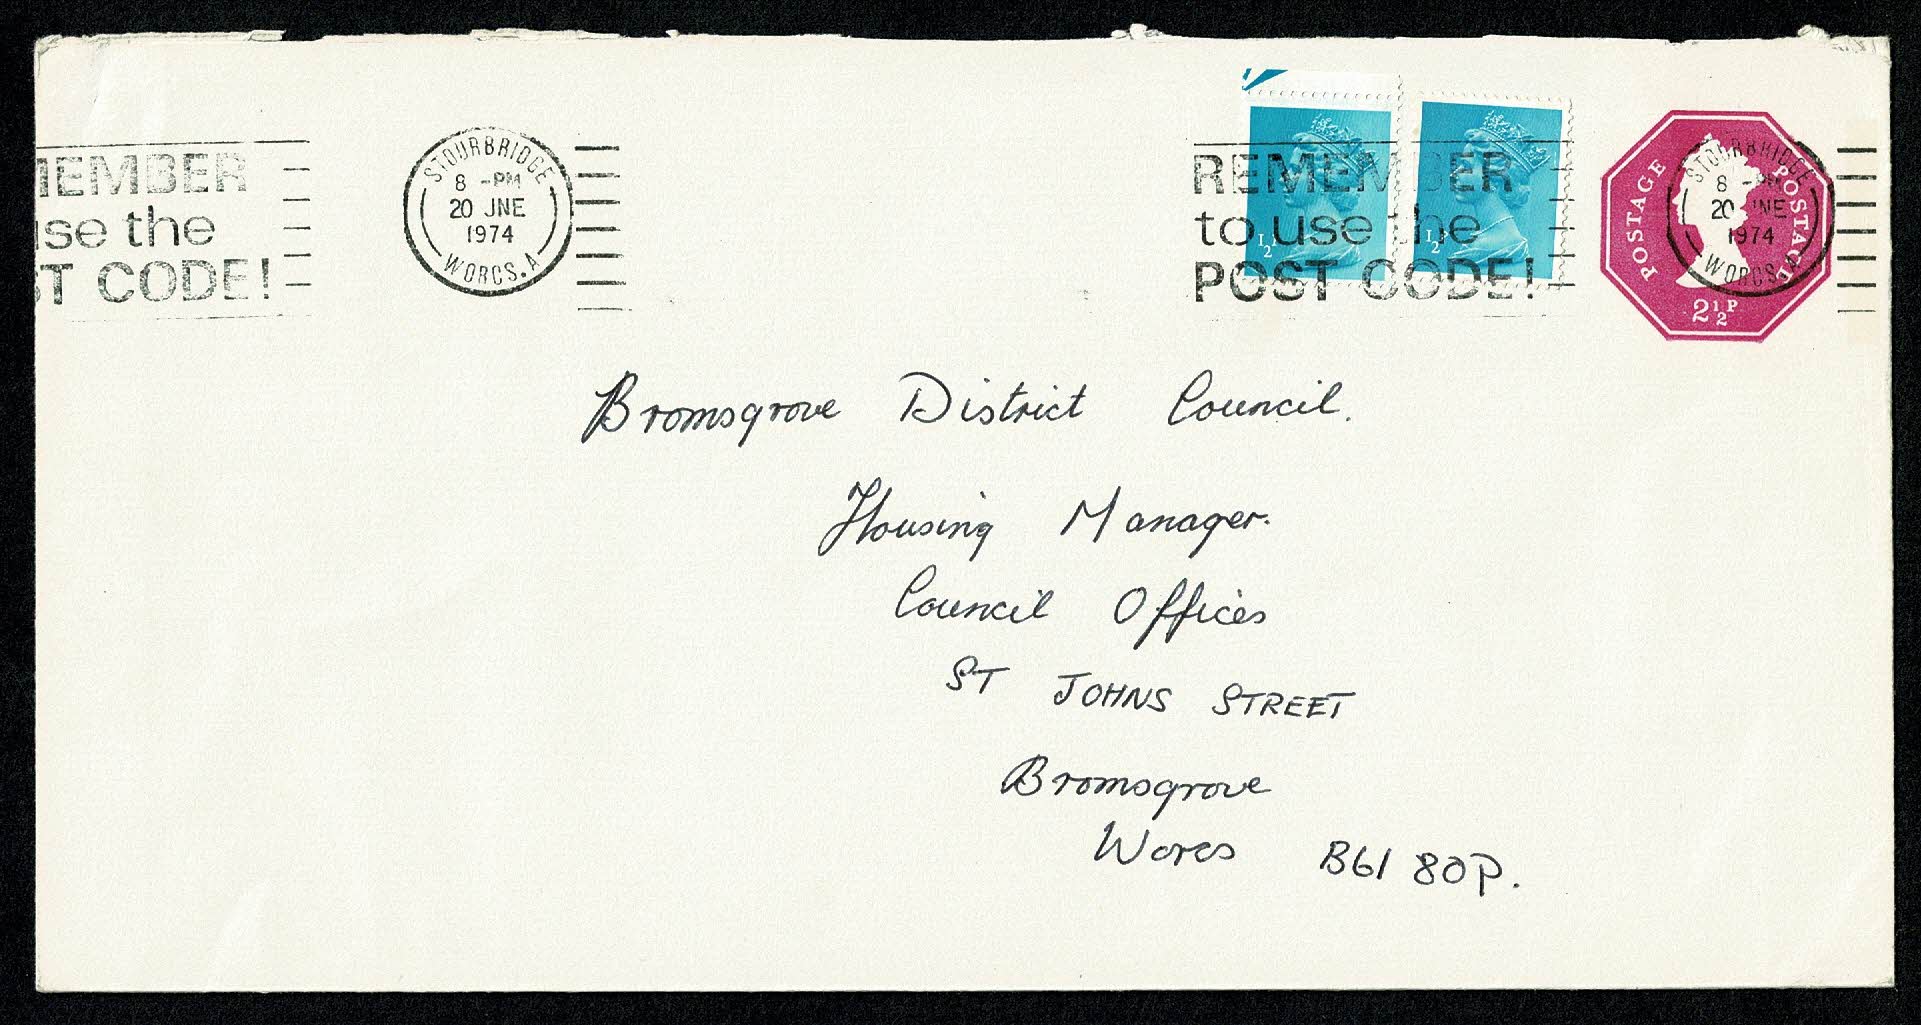 MEMBER
use the
ST CODE!
STOURBRIDGE
8 -PM
20 JNE
1974
WORCS.A
REMEMBER
to use the
POST CODE!
½P
½P
POSTAGE POSTAGE
2½P
STOURBRIDGE
8 -PM
20 JNE
1974
WORCS.A
Bromsgrove District Council.
Housing Manager.
Council Offices
ST JOHNS STREET
Bromsgrove
Worcs B61 8OP.